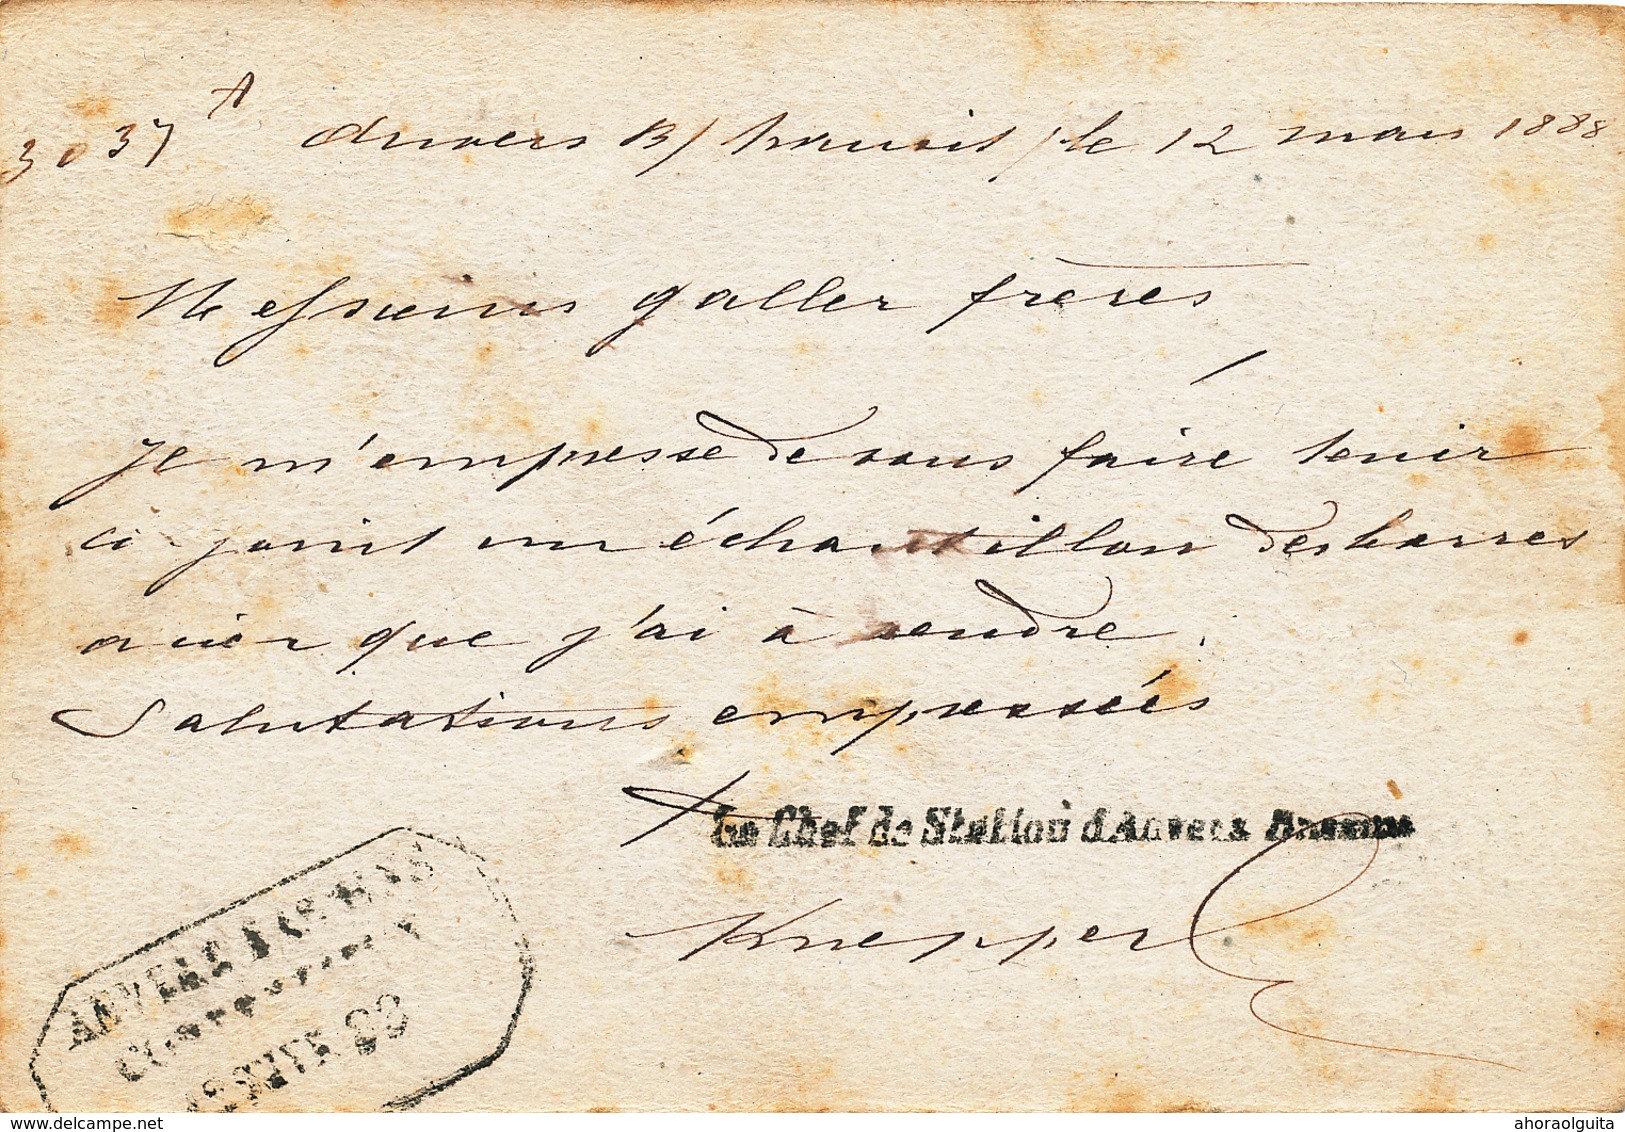 3037 A Anvers B/ transit / le 12 mars 1888
Messieurs Galler frères
Je m'empresse de vous faire tenir
ci-joint un échantillon des barres
acier que j'ai à vendre.
Salutations empressées
Le Chef de Station d'Anvers Bassins
Knepper
ANVERS BASSINS
delcampe.net
ahoraolguita